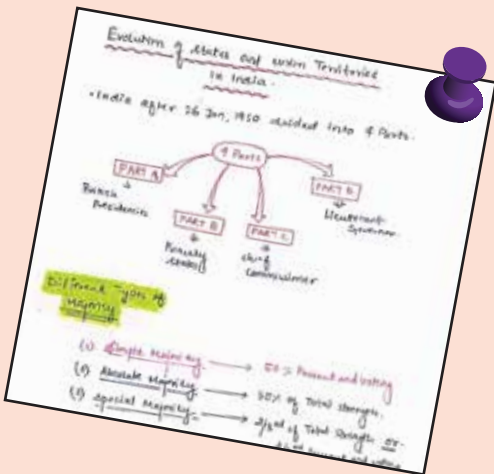 Evolution of states and union Territories
in India.
• India after 26 Jan, 1950 divided into 4 Parts.
4 Parts
PART A
PART B
PART C
PART D
British Presidencies
Princely states
chief commissioner
Lieutenant Governor
Different Types of
Majority
(1) Simple Majority → 50% Present and voting
(2) Absolute Majority → 50% of Total strength.
(3) Special Majority → 2/3rd of Total Strength or